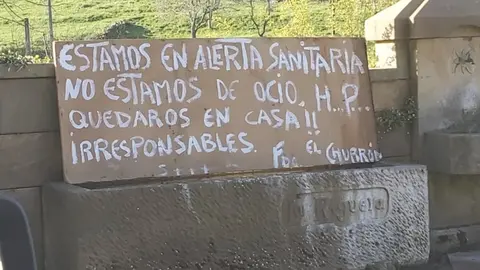 ESTAMOS EN ALERTA SANITARIA
NO ESTAMOS DE OCIO. H..P..
QUEDAROS EN CASA!!
IRRESPONSABLES. FDO EL CHURRÓN